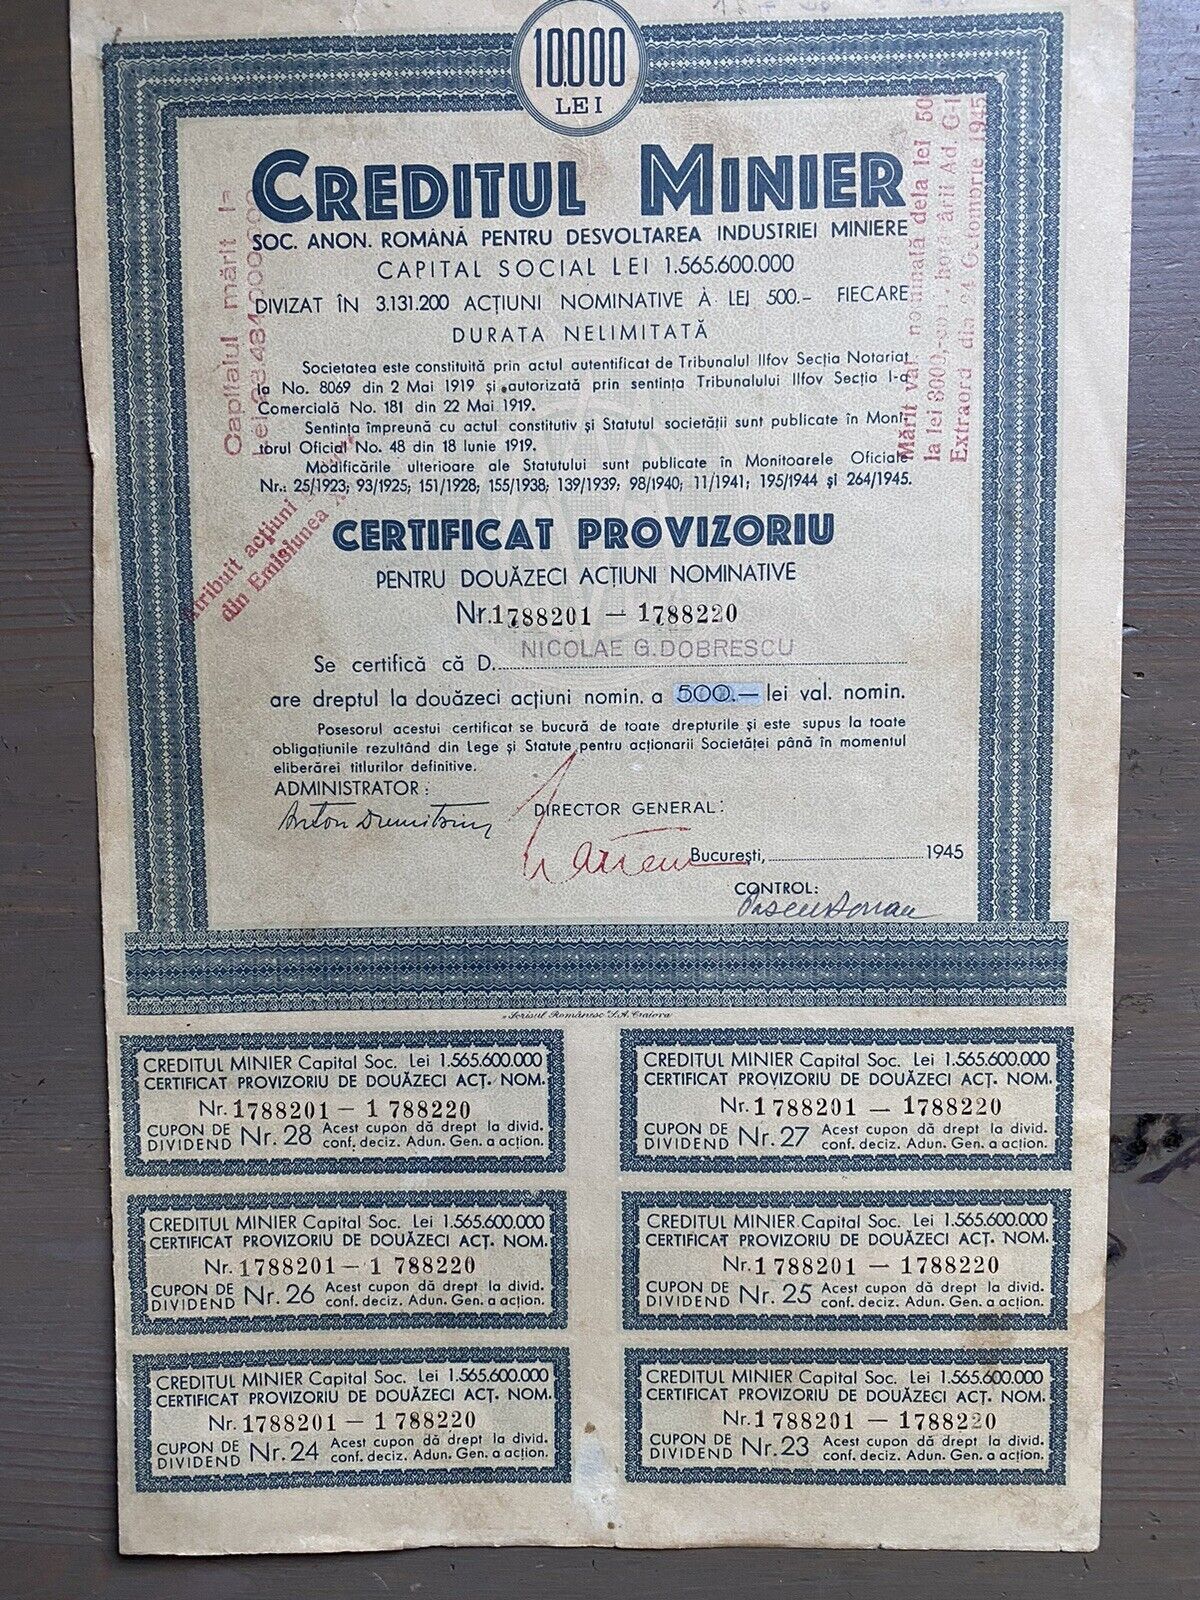 10.000
LEI
CREDITUL MINIER
SOC. ANON. ROMÂNĂ PENTRU DESVOLTAREA INDUSTRIEI MINIERE
CAPITAL SOCIAL LEI 1.565.600.000
DIVIZAT ÎN 3.131.200 ACȚIUNI NOMINATIVE À LEI 500.- FIECARE
DURATA NELIMITATĂ
Societatea este constituită prin actul autentificat de Tribunalul Ilfov Secția Notariat
la No. 8069 din 2 Mai 1919 și autorizată prin sentința Tribunalului Ilfov Secția I-a
Comercială No. 181 din 22 Mai 1919.
Sentința împreună cu actul constitutiv și Statutul societății sunt publicate în Moni-
torul Oficial No. 48 din 18 Iunie 1919.
Modificările ulterioare ale Statutului sunt publicate în Monitoarele Oficiale
Nr.: 25/1923; 93/1925; 151/1928; 155/1938; 139/1939; 98/1940; 11/1941; 195/1944 și 264/1945.
Capitalul mărit l-
Mărit val. nominală dela lei 50
la lei 3000,-
Extraord din 24 Octombrie 1945
atribuit acțiuni
din Emisiunea
CERTIFICAT PROVIZORIU
PENTRU DOUĂZECI ACȚIUNI NOMINATIVE
Nr. 1788201 — 1788220
Se certifică că D. NICOLAE G. DOBRESCU
are dreptul la douăzeci acțiuni nomin. a 500.— lei val. nomin.
Posesorul acestui certificat se bucură de toate drepturile și este supus la toate
obligațiunile rezultând din Lege și Statute pentru acționarii Societăței până în momentul
eliberărei titlurilor definitive.
ADMINISTRATOR:
DIRECTOR GENERAL:
București, 1945
CONTROL:
„Scrisul Românesc" S.A. Craiova
CREDITUL MINIER Capital Soc. Lei 1.565.600.000
CERTIFICAT PROVIZORIU DE DOUĂZECI ACȚ. NOM.
Nr. 1788201 — 1 788220
CUPON DE DIVIDEND Nr. 28 Acest cupon dă drept la divid.
conf. deciz. Adun. Gen. a action.
CREDITUL MINIER Capital Soc. Lei 1.565.600.000
CERTIFICAT PROVIZORIU DE DOUĂZECI ACȚ. NOM.
Nr. 1788201 — 1788220
CUPON DE DIVIDEND Nr. 27 Acest cupon dă drept la divid.
conf. deciz. Adun. Gen. a acțion.
CREDITUL MINIER Capital Soc. Lei 1.565.600.000
CERTIFICAT PROVIZORIU DE DOUĂZECI ACȚ. NOM.
Nr. 1788201 — 1 788220
CUPON DE DIVIDEND Nr. 26 Acest cupon dă drept la divid.
conf. deciz. Adun. Gen. a acțion.
CREDITUL MINIER Capital Soc. Lei 1.565.600.000
CERTIFICAT PROVIZORIU DE DOUĂZECI ACȚ. NOM.
Nr. 1788201 — 1788220
CUPON DE DIVIDEND Nr. 25 Acest cupon dă drept la divid.
conf. deciz. Adun. Gen. a acțion.
CREDITUL MINIER Capital Soc. Lei 1.565.600.000
CERTIFICAT PROVIZORIU DE DOUĂZECI ACȚ. NOM.
Nr. 1788201 — 1 788220
CUPON DE DIVIDEND Nr. 24 Acest cupon dă drept la divid.
conf. deciz. Adun. Gen. a acțion.
CREDITUL MINIER Capital Soc. Lei 1.565.600.000
CERTIFICAT PROVIZORIU DE DOUĂZECI ACȚ. NOM.
Nr. 1788201 — 1788220
CUPON DE DIVIDEND Nr. 23 Acest cupon dă drept la divid.
conf. deciz. Adun. Gen. a acțion.